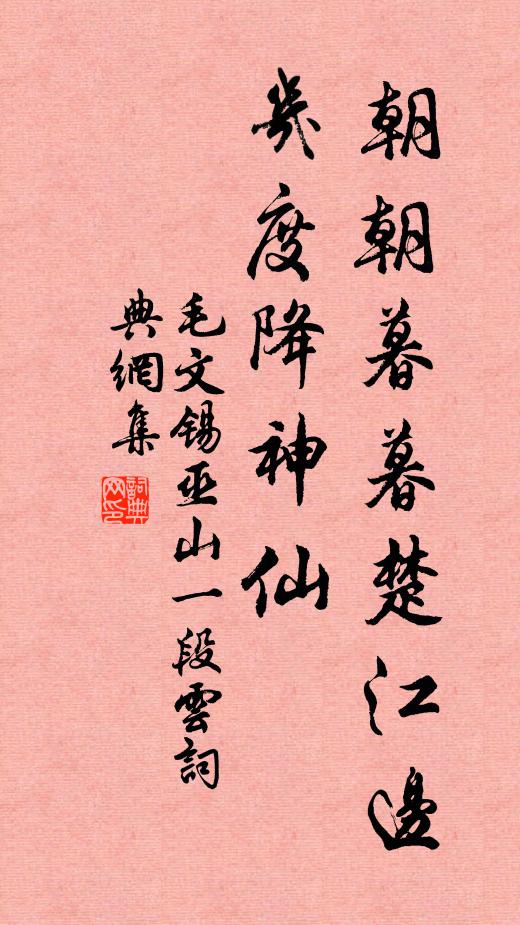 朝朝暮暮楚江邊
幾度降神仙
毛文錫巫山一段雲詞
典網集
詞典網印